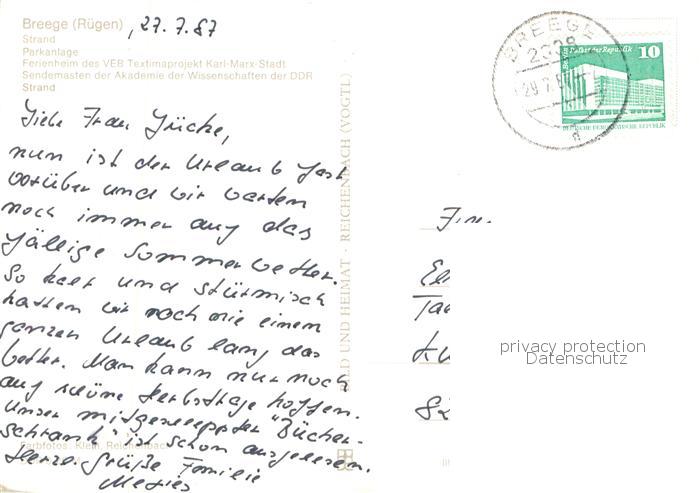 Breege (Rügen), 27.7.87
Strand
Parkanlage
Ferienheim des VEB Textimaprojekt Karl-Marx-Stadt
Sendemasten der Akademie der Wissenschaften der DDR
Strand
Frau
nun ist der Urlaub fast
vorüber und wir warten
noch immer auf das
fällige Sommerwetter.
So kalt und stürmisch
hatten wir noch nie einen
ganzen Urlaub lang das
Wetter. Man kann nur noch
auf schöne Herbsttage hoffen.
Unser mitgeschleppter "Bücher-
schrank" ist schon ausgelesen.
Herzl. Grüße Familie
Farbfotos: Klein, Reichenbach
BILD UND HEIMAT · REICHENBACH (VOGTL)
BREEGE
2338
29.7.
a
Berlin, Palast der Republik 10
DEUTSCHE DEMOKRATISCHE REPUBLIK
privacy protection
Datenschutz